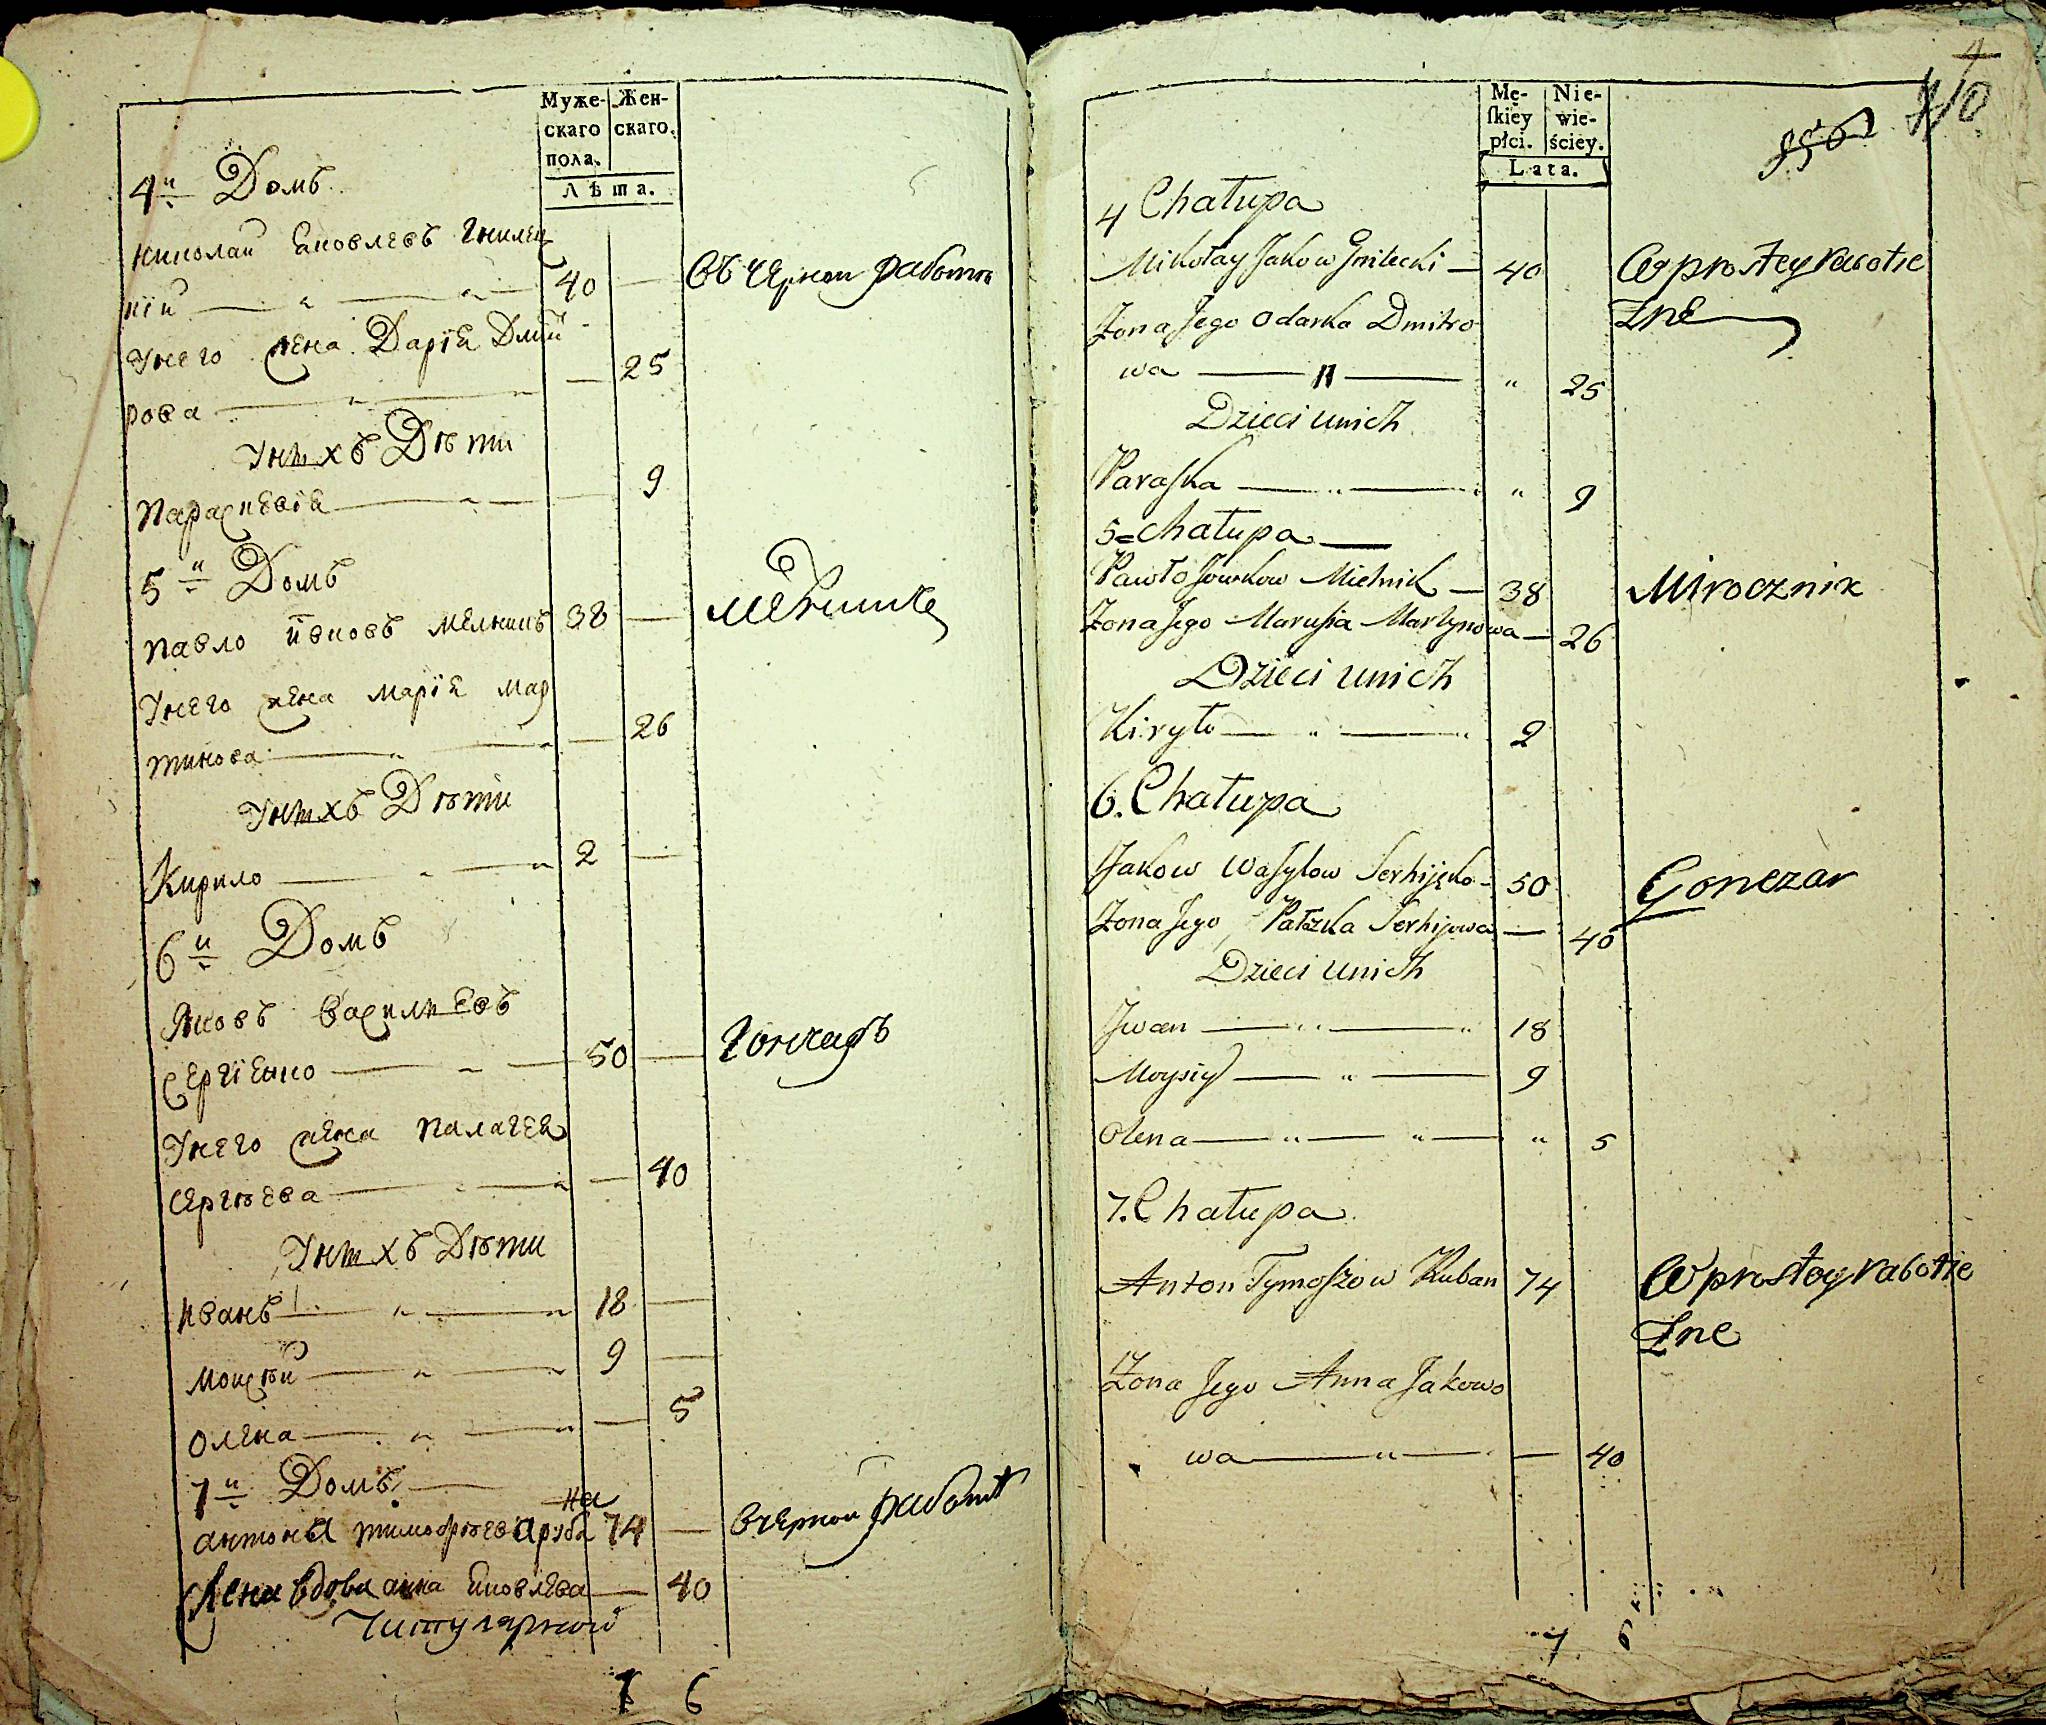 Муже-
скаго
пола.
Жен-
скаго.
Лѣта.
4й Домъ
Николай Яковлевъ Гнилец
кiй — „ — „ — 40 — въ черной работѣ
Унего жена Дарiя Дмит
рова — „ — — 25
Унихъ Дѣти
Параскевiя — „ — — 9
5й Домъ
Павло Ивковъ Мелникъ 38 —
Унего жена Марiя Мар
тинова — „ — — 26
Унихъ Дѣти
Кирило — „ — „ 2 —
6й Домъ
Яковъ Василиевъ
Сергiенко — „ — 50 — Гончаръ
Унего жена Палагея
Сергѣева — „ — „ — 40
Унихъ Дѣти
Иванъ — „ — „ 18 —
Моисѣй — „ — „ 9 —
Олена — „ — „ — 5
7й Домъ —
на
Антона Тимофѣева руба 74 — вчерной работѣ
Жена вдова анна Яковлева — 40
7 6
Mę-
ſkiey
płci.
Nie-
wie-
ściey.
Lata.
4
4 Chałupa
Mikołay Jakow Gnilecki — 40 W prostey rabotie
Żona Jego Odarka Dmitro
wa — „ — „ 25
Dzieci unich
Paraſka — „ — „ 9
5 = Chałupa —
Pawło Jowkow Mielnik — 38 Mirocznik
Żona Jego Marusia Martynowa — 26
Dzieci unich
Kiryło — „ — „ 2
6. Chałupa
Jakow Wasylow Serhijęko — 50 Gonczar
Żona Jego Pałazka Serhijowa — 40
Dzieci unich
Jwan — „ — „ 18
Moysiy — „ — 9
Olena — „ — „ — „ 5
7. Chałupa
Anton Tymoszow Kuban 74 W prostey rabotie
Żona Jego Anna Jakowo
wa — „ — — 40
7 6